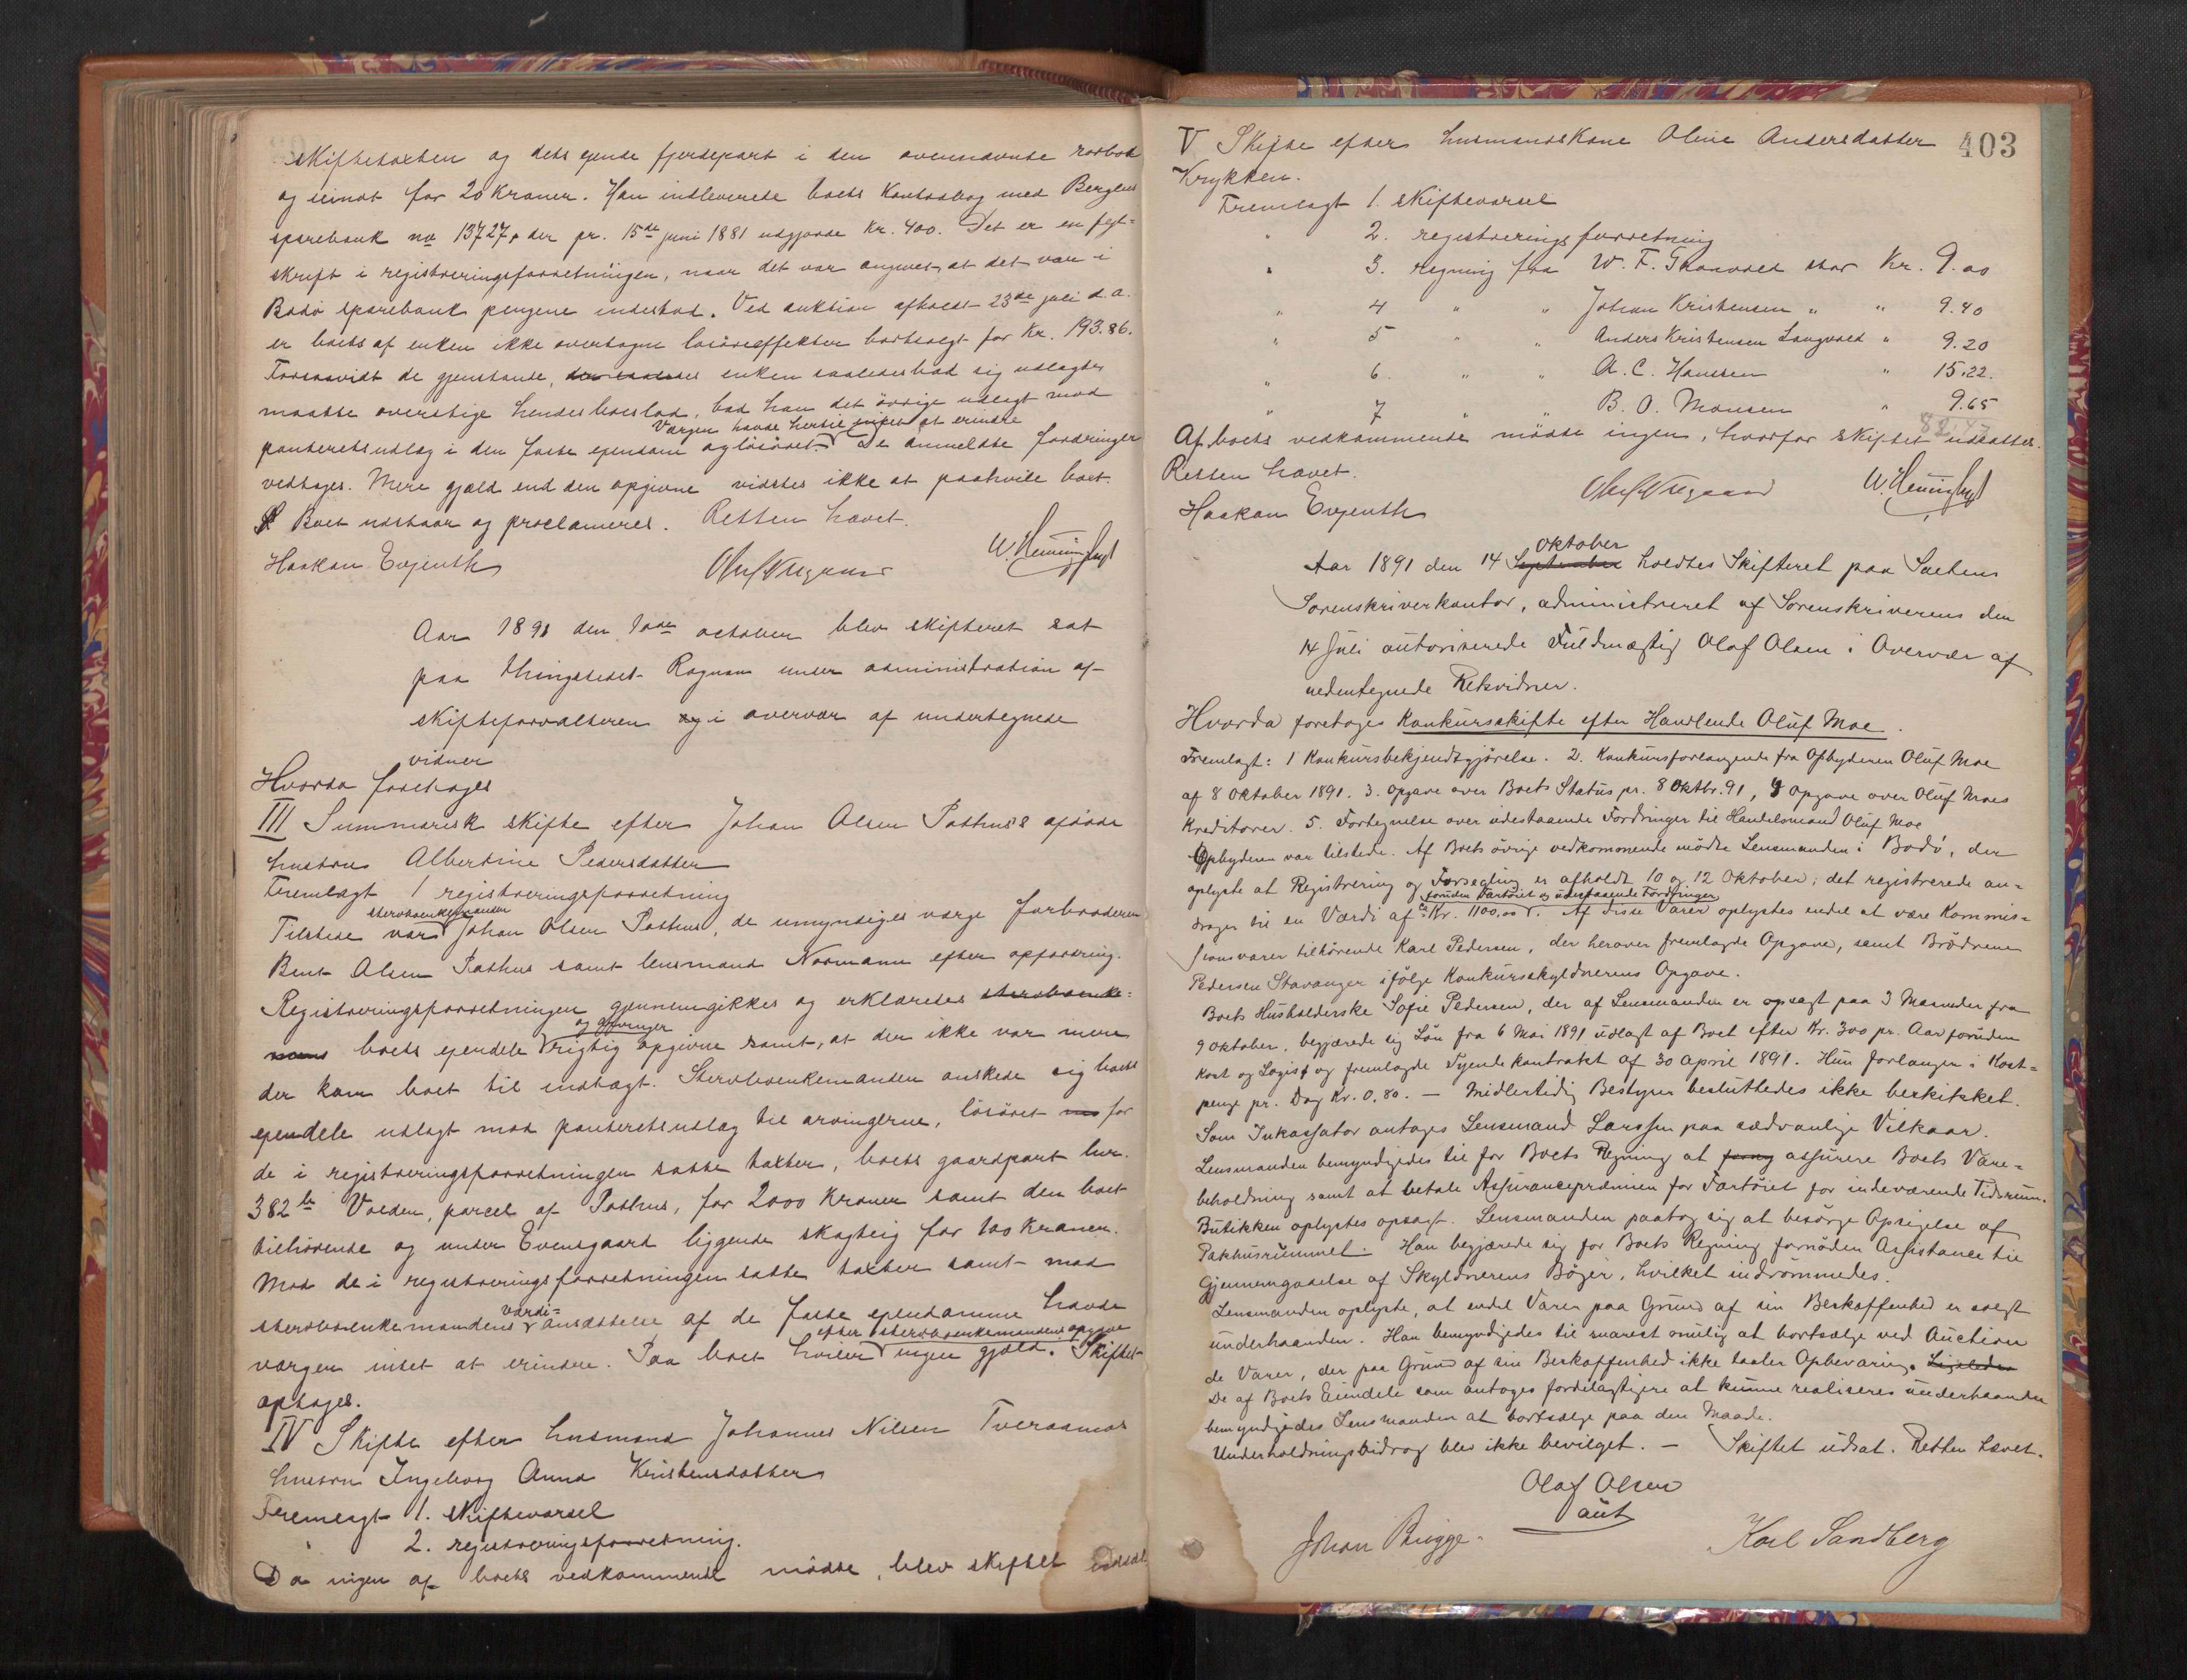 skiftetaxten og dets eiende fjerdepart i den ovennævnte rorbod
og seinot for 20 kroner. Han indleverede boets Kontrabog med Bergens
sparebank no 13727, der pr. 15de juni 1881 udgjorde Kr. 400. Det er en fejl-
skrift i registreringsforretningen, naar det var angivet, at det var i
Bodø sparebank pengene indestod. Ved auktion afholdt 23de juli d.a.
er boets af enken ikke overtagne løsøreeffekter bortsolgt for Kr. 193.86.
Forsaavidt de gjenstande, enken saaledes bad sig udlagte
maatte overstige hendes boeslod, bad han det øvrige udlagt mod
Værgen havde hertil intet at erindre
panteretsudlæg i den faste eiendom og løsøret. De anmeldte fordringer
vedtoges. Mere gjæld end den opgivne vidstes ikke at paahvile boet.
Boet udstaar og proclameres. Retten hævet.
Haakan Evjenth W. Henningsen
Aar 1891 den 10de october blev skifteret sat
paa thingstedet Rognan under administration af
skifteforvalteren og i overvær af undertegnede
vidner
Hvorda foretoges
III Summarisk skifte efter Johan Olsen Pothus's afdøde
hustru Albertine Pedersdatter
Fremlagt 1 registreringsforretning
stervboenkemanden
Tilstede var Johan Olsen Pothus, de umyndiges værge farbroderen
Bent Olsen Pothus samt lensmand Normann efter opfordring.
Registreringsforretningen gjennemgikkes og erklæredes stervboenke-
boets eiendele rigtig opgivne samt, at der ikke var mere
der kom boet til indtægt. Stervboenkemanden ønskede sig boets
eiendele udlagt mod panteretsudlæg til arvingerne, løsøret for
de i registreringsforretningen satte taxter, boets gaardpart lnr.
382 b Volden, parcel af Pothus, for 2000 kroner samt den boet
tilhørende og under Evensgaard liggende skogteig for 100 kroner.
Mod de i registreringsforretningen satte taxter samt mod
værdi-
stervboenkemandens ansættelse af de faste eiendomme havde
efter stervboenkemandens opgave
værgen intet at erindre. Paa boet hviler ingen gjæld. Skiftet
optoges.
IV Skifte efter husmand Johannes Nilsen Tveraamo's
hustru Ingeborg Anna Kristensdatter
Fremlagt 1. skiftevarsel
" 2. registreringsforretning.
Da ingen af boets vedkommende mødte, blev skiftet udsat
403
V Skifte efter husmandskone Oline Andersdatter
Krykken.
Fremlagt 1. skiftevarsel
" 2. registreringsforretning
" 3. regning fra W. F. stor Kr. 9.00
" 4 " " Johan Kristensen " " 9.40
" 5 " " Anders Kristensen Langvald " 9.20
" 6. " " A. C. Hansen " 15.22.
" 7 " " B. O. Monsen " 9.65
Af boets vedkommende mødte ingen, hvorfor skiftet udsattes.
Retten hævet.
Haakan Evjenth W. Henningsen
Oktober
Aar 1891 den 14 September holdtes Skifteret paa Saltens
Sorenskriverkontor, administreret af Sorenskriverens den
14 Juli autoriserede Fuldmægtig Olaf Olsen i Overvær af
nedentegnede Retsvidner.
Hvorda foretoges Konkursskifte efter Handlende Oluf Moe.
Fremlagt: 1 Konkursbekjendtgjørelse. 2. Konkursforlangende fra Opbyderen Oluf Moe
af 8 Oktober 1891. 3. Opgave over Boets Status pr. 8 Oktbr. 91, 4 Opgave over Oluf Moes
Kreditorer. 5. Fortegnelse over udestaaende Fordringer til Handelsmand Oluf Moe
Opbyderen var tilstede. Af Boets øvrige vedkommende mødte Lensmanden i Bodø, der
oplyste at Registrering og Forsegling er afholdt 10 og 12 Oktober; det registrerede an-
foruden Fartøiet og udestaaende Fordringer
drager til en Værdi af ca Kr. 1100,00. Af disse Varer oplystes endel at være Kommis-
sionsvarer tilhørende Karl Pedersen, der herover fremlagde Opgave, samt Brødrene
Pedersen Stavanger ifølge Konkursskyldnerens Opgave.
Boets Husholderske Sofie Pedersen, der af Lensmanden er opsagt paa 3 Maaneder fra
9 Oktober, begjærede sig Løn fra 6 Mai 1891 udlagt af Boet efter Kr. 300 pr. Aar foruden
Kost og Logis og fremlagde Tyendekontrakt af 30 April 1891. Hun forlanger i Kost-
penge pr. Dag Kr. 0,80. — Midlertidig Bestyrer besluttedes ikke beskikket.
Som Inkassator antoges Lensmand Larssen paa sædvanlige Vilkaar.
Lensmanden bemyndigedes til for Boets Regning at assurere Boets Vare-
beholdning samt at betale Assurancepræmien for Fartøiet for indeværende Tidsrum.
Butikken oplystes opsagt. Lensmanden paatog sig at besørge Opsigelse af
Pakhusrummet. Han begjærede sig for Boets Regning fornøden Assistance til
Gjennemgaaelse af Skyldnerens Bøger, hvilket indrømmedes.
Lensmanden oplyste, at endel Varer paa Grund af sin Beskaffenhed er solgt
underhaanden. Han bemyndigedes til snarest mulig at bortsælge ved Auction
de Varer, der paa Grund af sin Beskaffenhed ikke taaler Opbevaring. Ligeledes
De af Boets Eiendele som antages fordelagtigere at kunne realiseres underhaanden
bemyndigedes Lensmanden at bortsælge paa den Maade.
Underholdningsbidrag blev ikke bevilget. — Skiftet udsat. Retten hævet.
Olaf Olsen
aut
Johan Brygge. Karl Sandberg